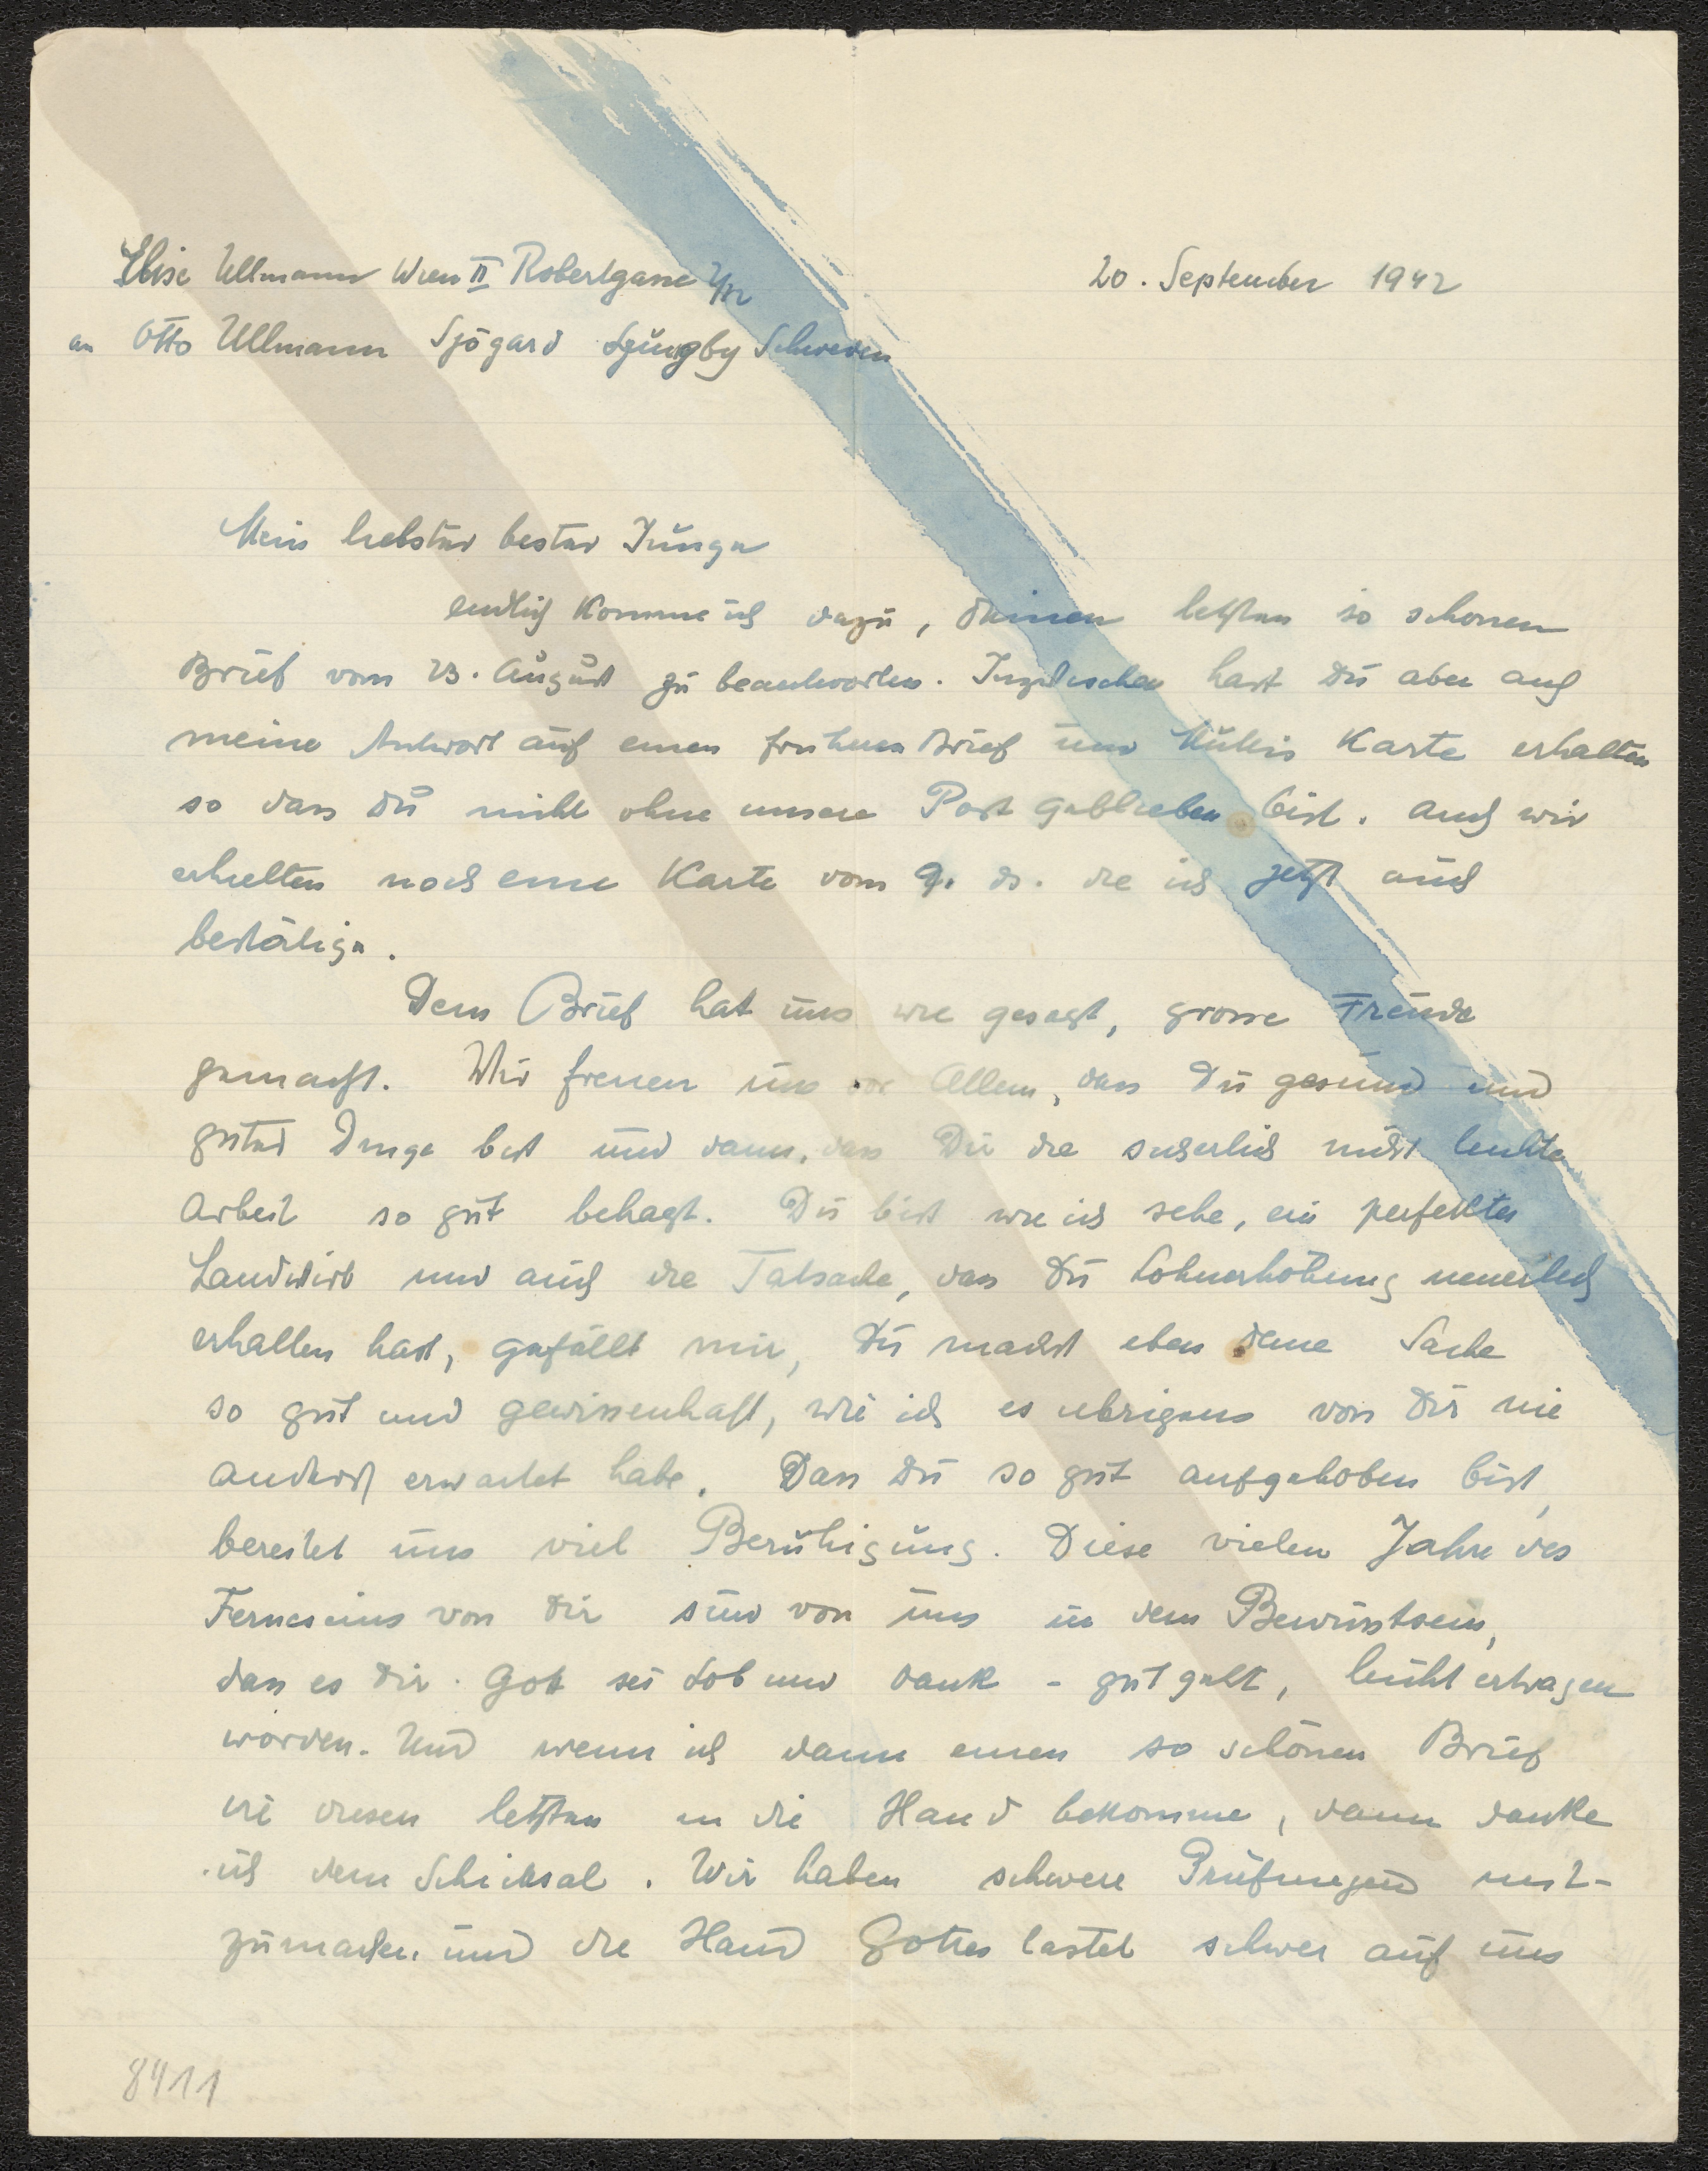 Elise Ullmann Wien II Robertgasse
20. September 1942
an Otto Ullmann Sjögard Ljüngby Schweden
Mein liebster bester Junge
endlich komme ich dazu, Deinen letzten so schonen
Brief vom 23. August zu beantworten. Inzwischen hast Du aber auch
meine Antwort auf einen fruheren Brief und Muttis Karte erhalten
so dass Du nicht ohne unsere Post geblieben bist. auch wir
erhielten noch eine Karte vom 9. ds. die ich jetzt auch
bestätige.
Dein Brief hat uns wie gesagt, grosse Freude
gemacht. Wir freuen uns vor Allem, dass Du gesund und
guter Dinge bist und dann, dass Dir die sicherlich nicht leichte
Arbeit so gut behagt. Du bist wie ich sehe, ein perfekter
Landwirt und auch die Tatsache, dass Du Lohnerhöhung neuerlich
erhalten hast, gefällt mir, Du machst eben deine Sache
so gut und gewissenhaft, wie ich es ubrigens von Dir nie
anders erwartet habe. Dass Du so gut aufgehoben bist,
bereitet uns viel Beruhigung. Diese vielen Jahre des
Fernseins von Dir sind von uns in dem Bewusstsein,
dass es Dir - Gott sei Lob und Dank - gut geht, leicht ertragen
worden. Und wenn ich dann einen so schönen Brief
wie diesen letzten in die Hand bekomme, dann danke
ich dem Schicksal. Wir haben schwere Prüfungen mit-
zumachen und die Hand Gottes lastet schwer auf uns
8411